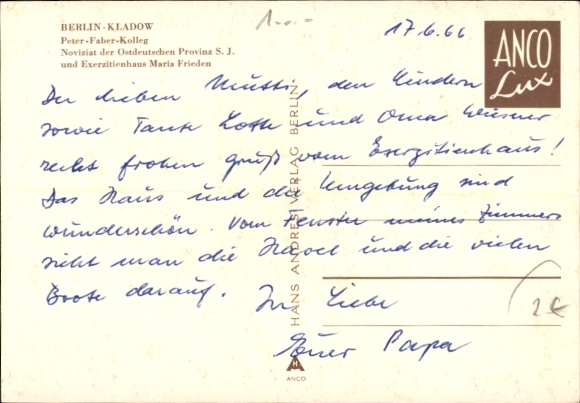 1.-.-
17.6.66
BERLIN-KLADOW
Peter-Faber-Kolleg
Noviziat der Ostdeutschen Provinz S. J.
und Exerzitienhaus Maria Frieden
ANCO
Lux
Der lieben Mutti, den Kindern
sowie Tante Lotte und Oma Wiesner
recht frohen Gruß vom Exerzitienhaus!
Das Haus und die Umgebung sind
wunderschön. Vom Fenster meines Zimmers
sieht man die Havel und die vielen
Boote darauf. In Liebe
Euer Papa
2€
HANS ANDRES VERLAG BERLIN
H
ANCO